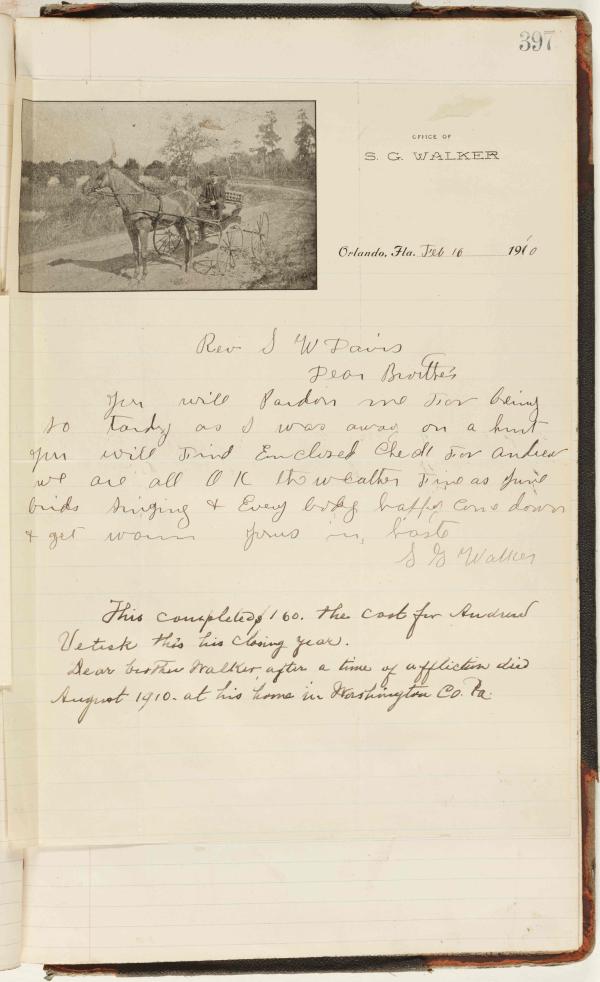 397
OFFICE OF
S. G. WALKER
Orlando, Fla. Feb 16 1910
Rev S W Davis
Dear Brother
you will Pardon me For being
so tardy as I was away on a hunt
you will Find Enclosed Check For Andrew
we are all O K the weather Fine as June
birds singing & Every body happy Come down
& get warm yours in haste
S G Walker
This completed 160. the cost for Andrew
Uetisk this his closing year.
Dear brother Walker, after a time of affliction died
August 1910. at his home in Washington Co. Pa.